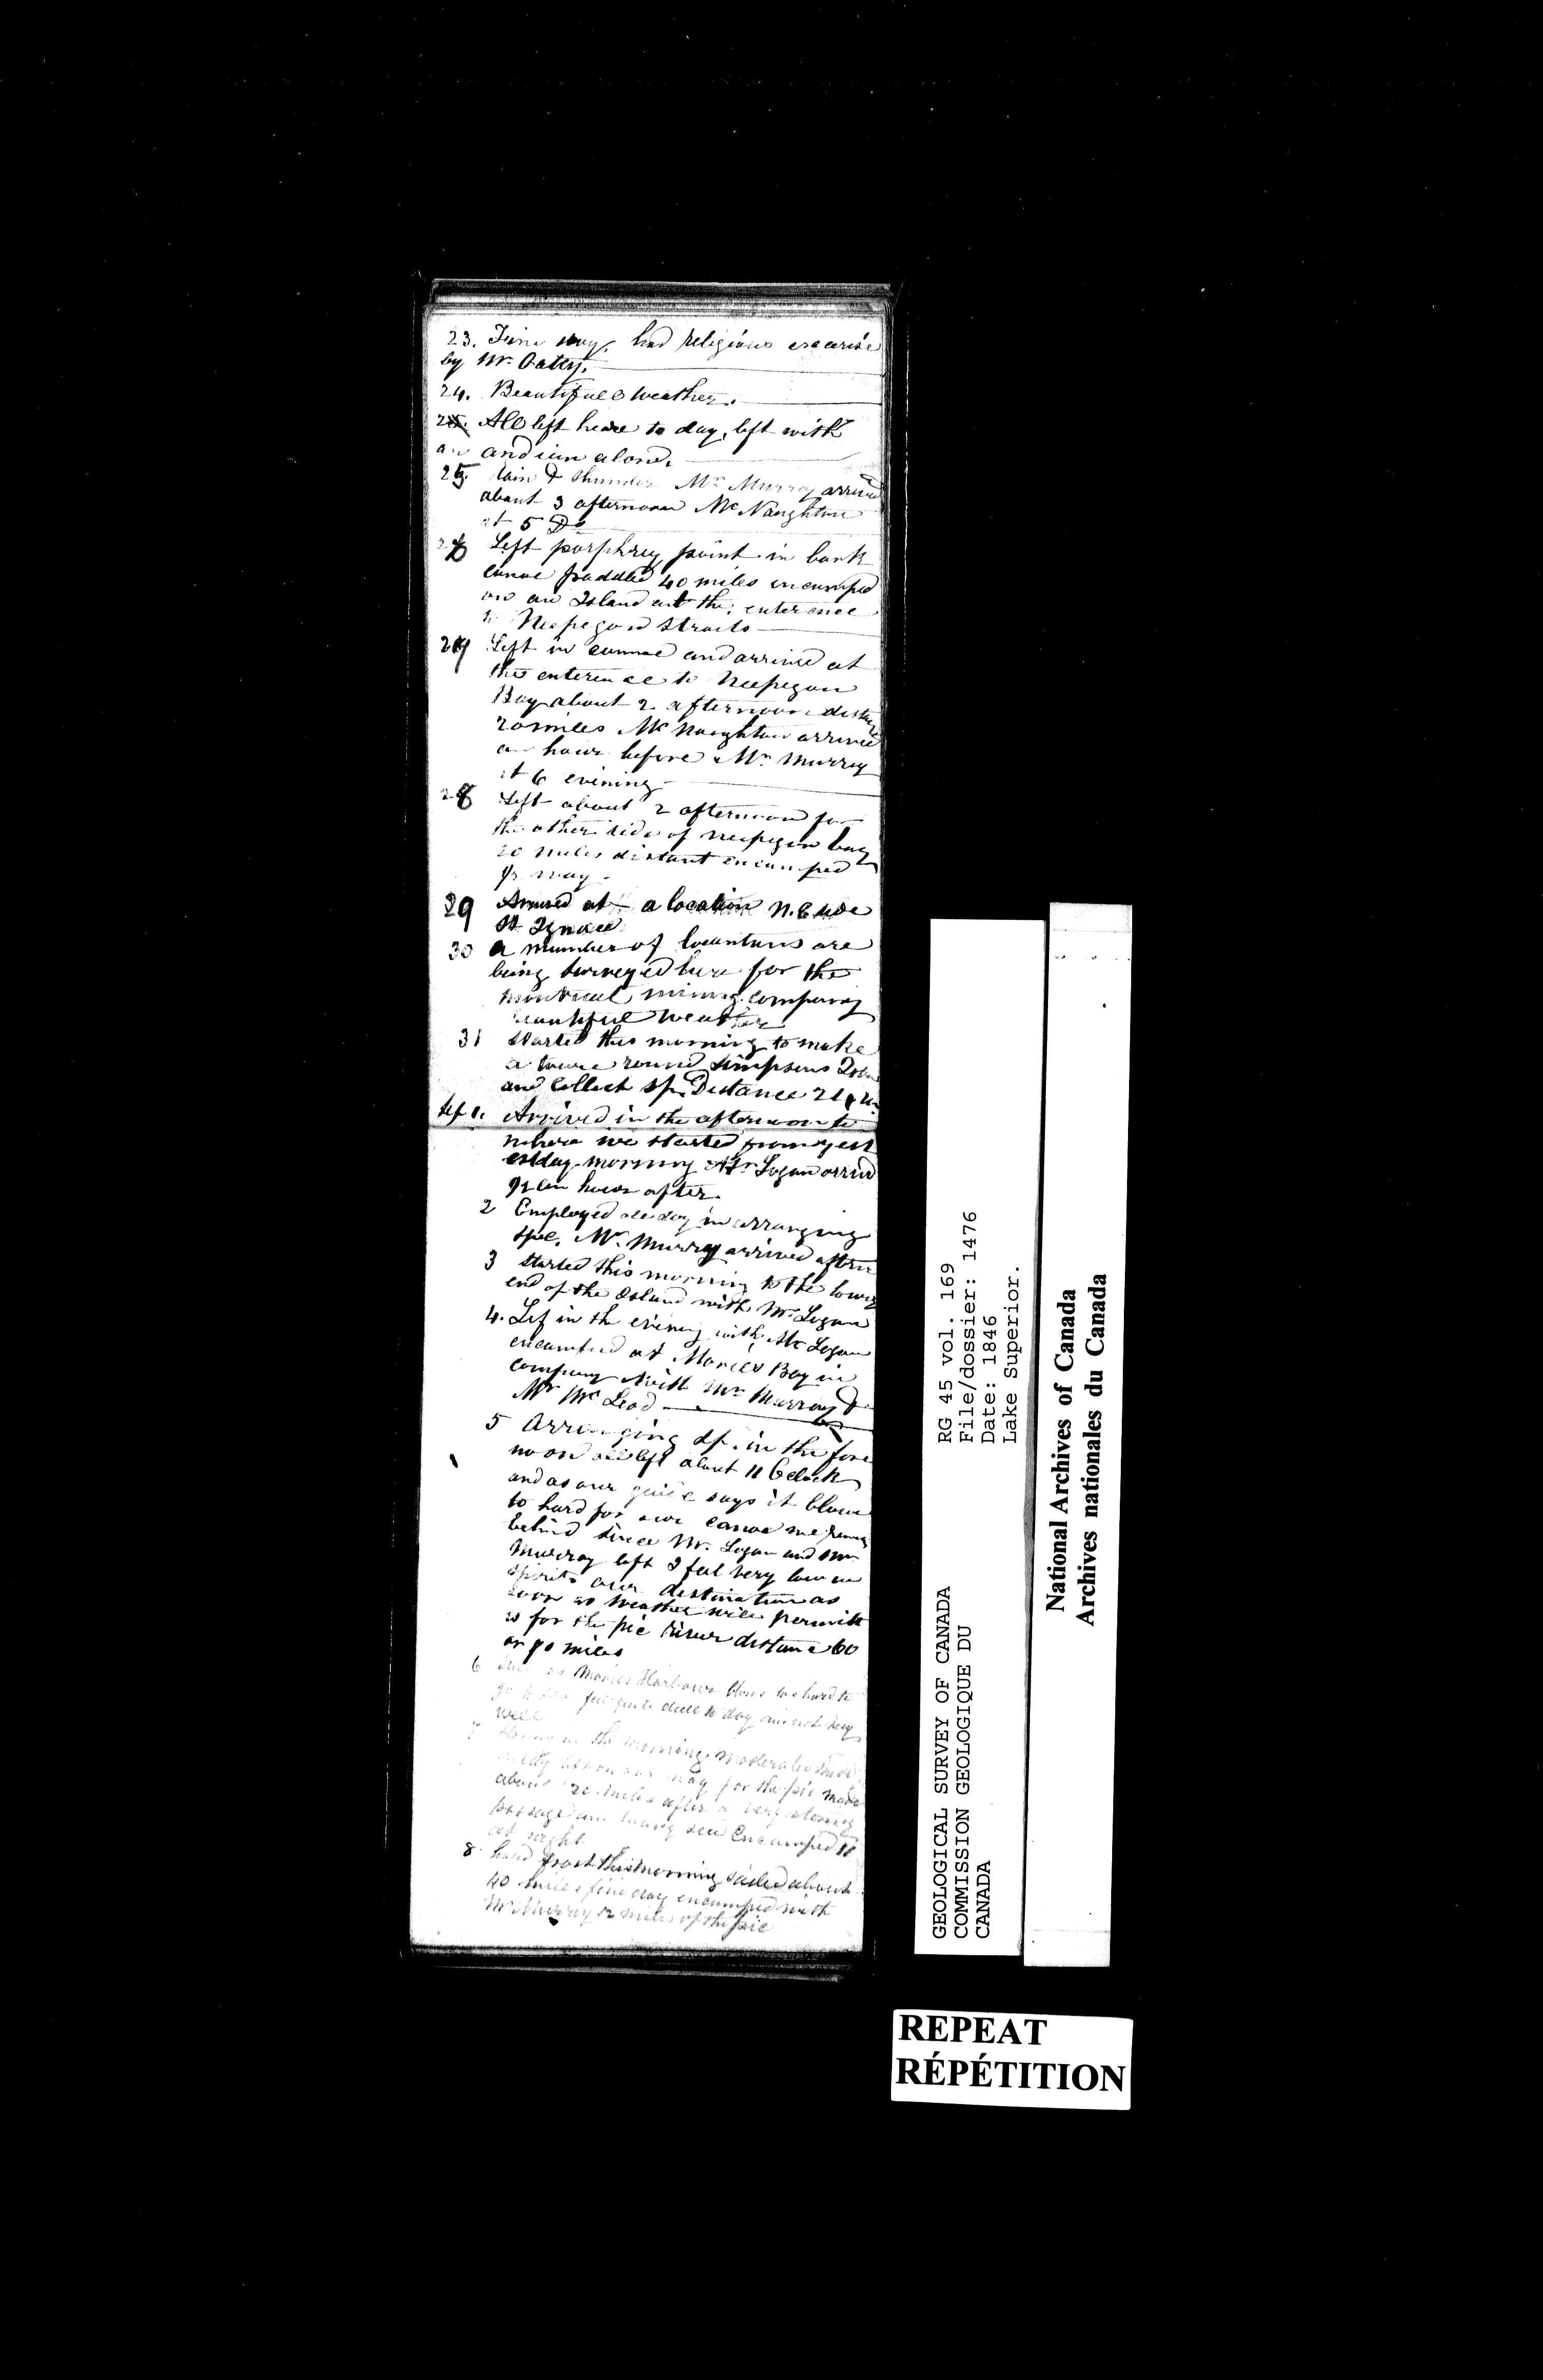 23. Fine day, had religious exercise
by Mr. Oatey.
24. Beautifull weather.
25. All left heare to day, left with
an andian alone.
25. Rain & thunder Mr Murray arrived
about 3 afternoon McNaughton
at 5 Do
26 Left porphrey point in bark
canoe paddled 40 miles encamped
on an Island at the enterence
to Neepegon Straits
27 Left in cannoe and arrived at
the enterence to Neepegon
Bay about 2 afternoon distance
20 miles McNaughton arrived
an hour before Mr. Murray
at 6 evining
28 Left about 2 afternoon for
the other side of neepegon bay
20 miles distant encamped
1/2 way
29 Arrived at a location N.E side
St Ignace
30 a number of locantuns are
being surveyed here for the
montreal mining company
beautiful weather
31 Started this morning to make
a towre round Simpsons Island
and Collect sp. Distance 24 m
Sep 1. Arrived in the afternoon to
where we started from yest
erday morning Mr Logan arrived
1/2 an hour after.
2 Employed all day in arranging
spe. Mr. Murray arrived aftern
3 Started this morning to the lower
end of the Island with Mr Logan
4. Lef in the evening with Mr Logan
encamped at Moniers Bay in
company with Mr Murray &
Mr McLeod
5 Arranging sp. in the fore
noon all left about 11 Oclock
and as our guide says it blows
to hard for our canoe we remain
behind since Mr. Logan and Mr
Murray left I feel very low in
spirits our destination as
soon as weather will permitt
is for the pic river distance 60
or 70 miles
6 Moniers Harbour blows to hard to
go to feel quite dull to day am not very
well
7 in the morning, moderated
left on our way for the pic made
about 20 miles after a very stormy
passage and heavy sea Encamped
at night
8 hard frost this morning sailed about
40 miles fine day encamped with
Mr Murray miles of the pic
GEOLOGICAL SURVEY OF CANADA
COMMISSION GEOLOGIQUE DU
CANADA
RG 45 vol. 169
File/dossier: 1476
Date: 1846
Lake Superior.
National Archives of Canada
Archives nationales du Canada
REPEAT
RÉPÉTITION